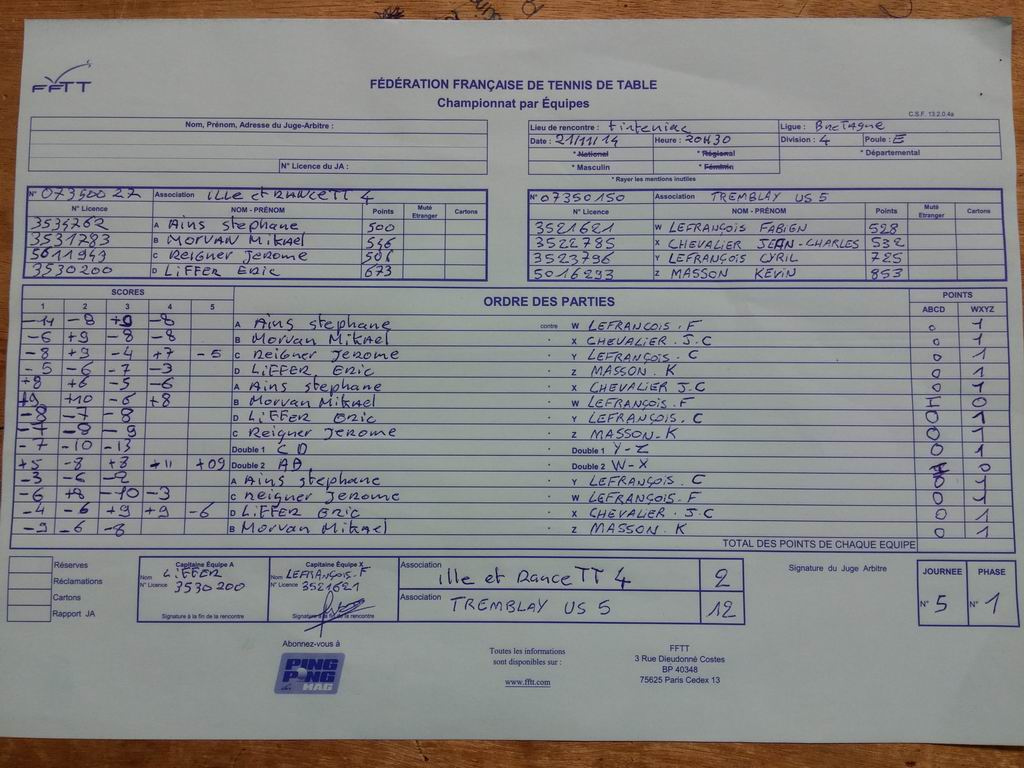 FFTT
FÉDÉRATION FRANÇAISE DE TENNIS DE TABLE
Championnat par Équipes
C.S.F. 13.2.0.4a
Nom, Prénom, Adresse du Juge-Arbitre :
N° Licence du JA :
Lieu de rencontre : Tinteniac Ligue : BreTagne
Date : 21/11/14 Heure : 20H30 Division : 4 Poule : E
* National * Régional * Départemental
* Masculin * Féminin
* Rayer les mentions inutiles
N° 07350027 Association ille et RANCE TT 4
N° Licence NOM - PRÉNOM Points Muté Etranger Cartons
3534262 A Ains stephane 500
3531783 B MORVAN Mikael 546
5611949 C Reigner Jerome 506
3530200 D LiFFER Eric 673
N° 07350150 Association TREMBLAY US 5
N° Licence NOM - PRÉNOM Points Muté Etranger Cartons
3521621 W LEFRANÇOIS FABIEN 528
3522785 X CHEVALIER JEAN-CHARLES 532
3523796 Y LEFRANÇOIS CYRIL 725
5016293 Z MASSON KEVIN 853
SCORES ORDRE DES PARTIES POINTS
1 2 3 4 5 ABCD WXYZ
-14 -8 +9 -8 A Ains stephane contre W LEFRANCOIS . F 0 1
-6 +9 -8 -8 B Morvan Mikael - X CHEVALIER . J.C 0 1
-8 +9 -4 +7 -5 C Reigner Jerome - Y LEFRANÇOIS . C 0 1
-5 -6 -7 -3 D LiFFER Eric - Z MASSON . K 0 1
+8 +6 -5 -6 A Ains stephane - X CHEVALIER J.C 0 1
+9 +10 -6 +8 B Morvan Mikael - W LEFRANÇOIS . F 1 0
-8 -7 -8 D LiFFER Eric - Y LEFRANÇOIS . C 0 1
-7 -8 -9 C Reigner Jerome - Z MASSON - K 0 1
-7 -10 -13 Double 1 C D - Double 1 Y-Z 0 1
+5 -8 +8 +11 +09 Double 2 AB - Double 2 W-X 0
-3 -6 -2 A Ains stephane - Y LEFRANÇOIS . C 0 1
-6 +8 -10 -3 C Reigner Jerome - W LEFRANÇOIS . F 0 1
-4 -6 +9 +9 -6 D LiFFER Eric - X CHEVALIER . J.C 0 1
-9 -6 -8 B Morvan Mikael - Z MASSON . K 0 1
TOTAL DES POINTS DE CHAQUE EQUIPE
Réserves
Réclamations
Cartons
Rapport JA
Capitaine Équipe A
Nom LiFFER
N° Licence 3530200
Signature à la fin de la rencontre
Capitaine Équipe X
Nom LEFRANÇOIS . F
N° Licence 3521621
Signature à la fin de la rencontre
Association ille et Rance TT 4 2
Association TREMBLAY US 5 12
Signature du Juge Arbitre
JOURNEE PHASE
N° 5 N° 1
Abonnez-vous à
PING PONG MAG
Toutes les informations
sont disponibles sur :
www.fftt.com
FFTT
3 Rue Dieudonné Costes
BP 40348
75625 Paris Cedex 13